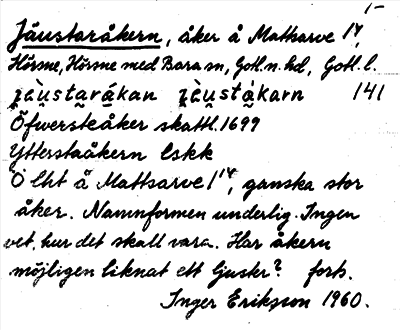 1-
Jäustaråkern, åker å Mattsarve 1⁴,
Hörsne, Hörsne med Bara sn, Gotl. n. hd, Gotl. l.
141
Öfwersteåker skattl. 1699
Ytterstaåkern Lskk
Ö Lht å Mattsarve 1¹⁴, ganska stor
åker. Namnformen underlig. Ingen
vet, hur det skall vara. Har åkern
möjligen liknat ett ljuster? forts.
Inger Erikson 1960.